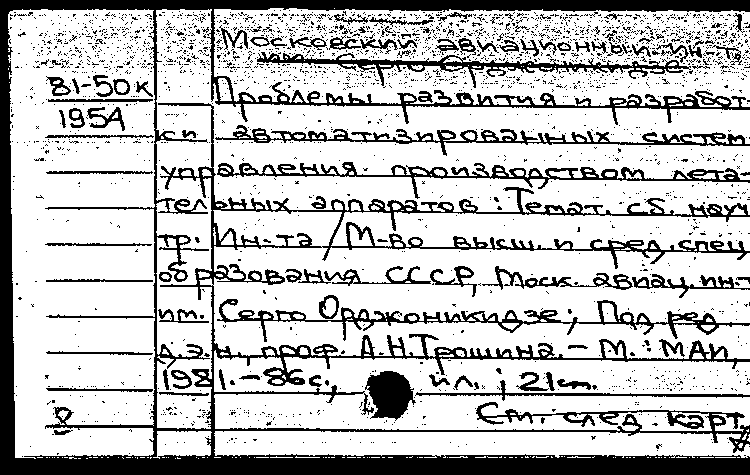 Московский авиационный ин-т
им. Серго Орджоникидзе
81-50к Проблемы развития и разработ
1954
ки автоматизированных систем
управления производством лета-
тельных аппаратов : Темат. сб. науч
тр. Ин-та / М-во высш. и сред. спец
образования СССР, Моск. авиац. ин-т
им. Серго Орджоникидзе; Под ред
д.э.н., проф. А.Н.Трошина. – М. : МАИ,
1981. – 86с., ил. ; 21см.
См. след. карт.